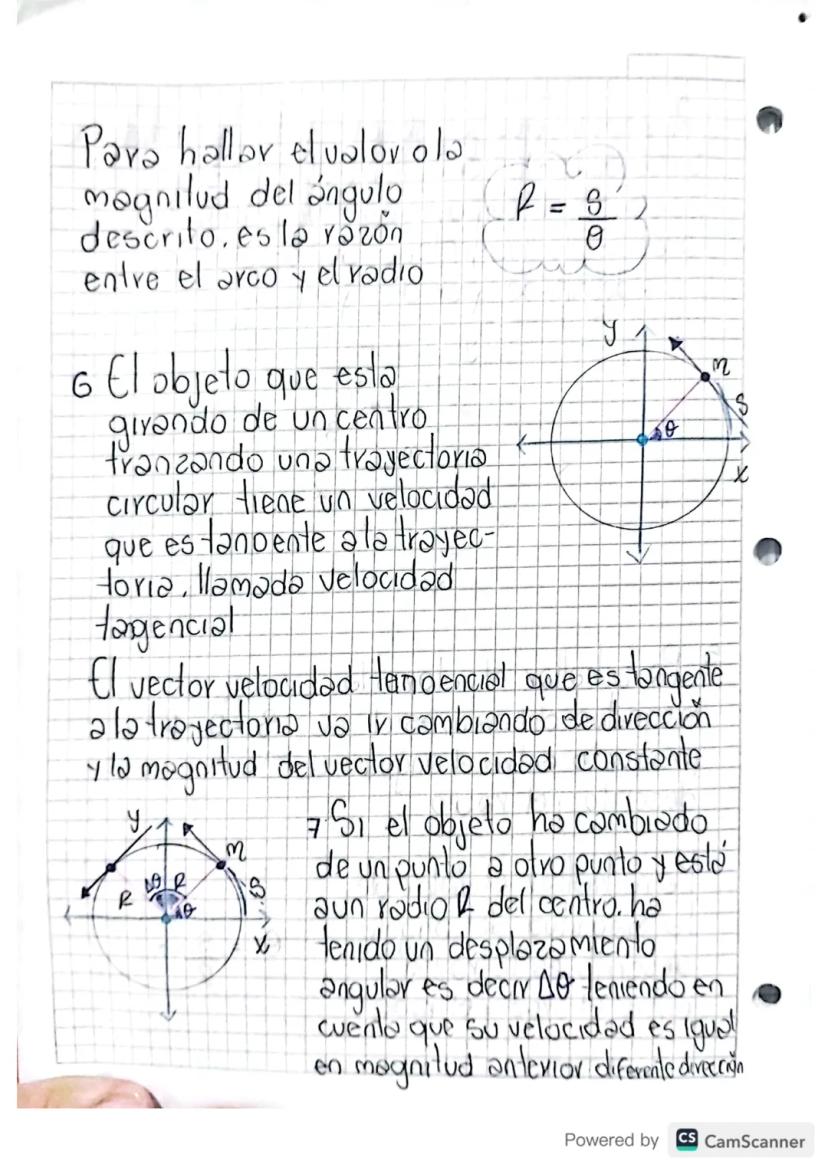 Para hallar el valor o la
magnitud del ángulo
descrito, es la razón
entre el arco y el radio
R = S
θ
6 El objeto que esta
girando de un centro
tranzando una trayectoria
circular tiene un velocidad
que es tangente a la trayec-
toria, llamada velocidad
tagencial
y
m
S
θ
x
El vector velocidad tangencial que es tangente
a la trayectoria va ir cambiando de dirección
y la magnitud del vector velocidad constante
y
m
Δθ R
R
S
θ
x
7 Si el objeto ha cambiado
de un punto a otro punto y está
a un radio R del centro. ha
tenido un desplazamiento
angular es decir Δθ teniendo en
cuenta que su velocidad es igual
en magnitud anterior diferente dirección
Powered by CS CamScanner